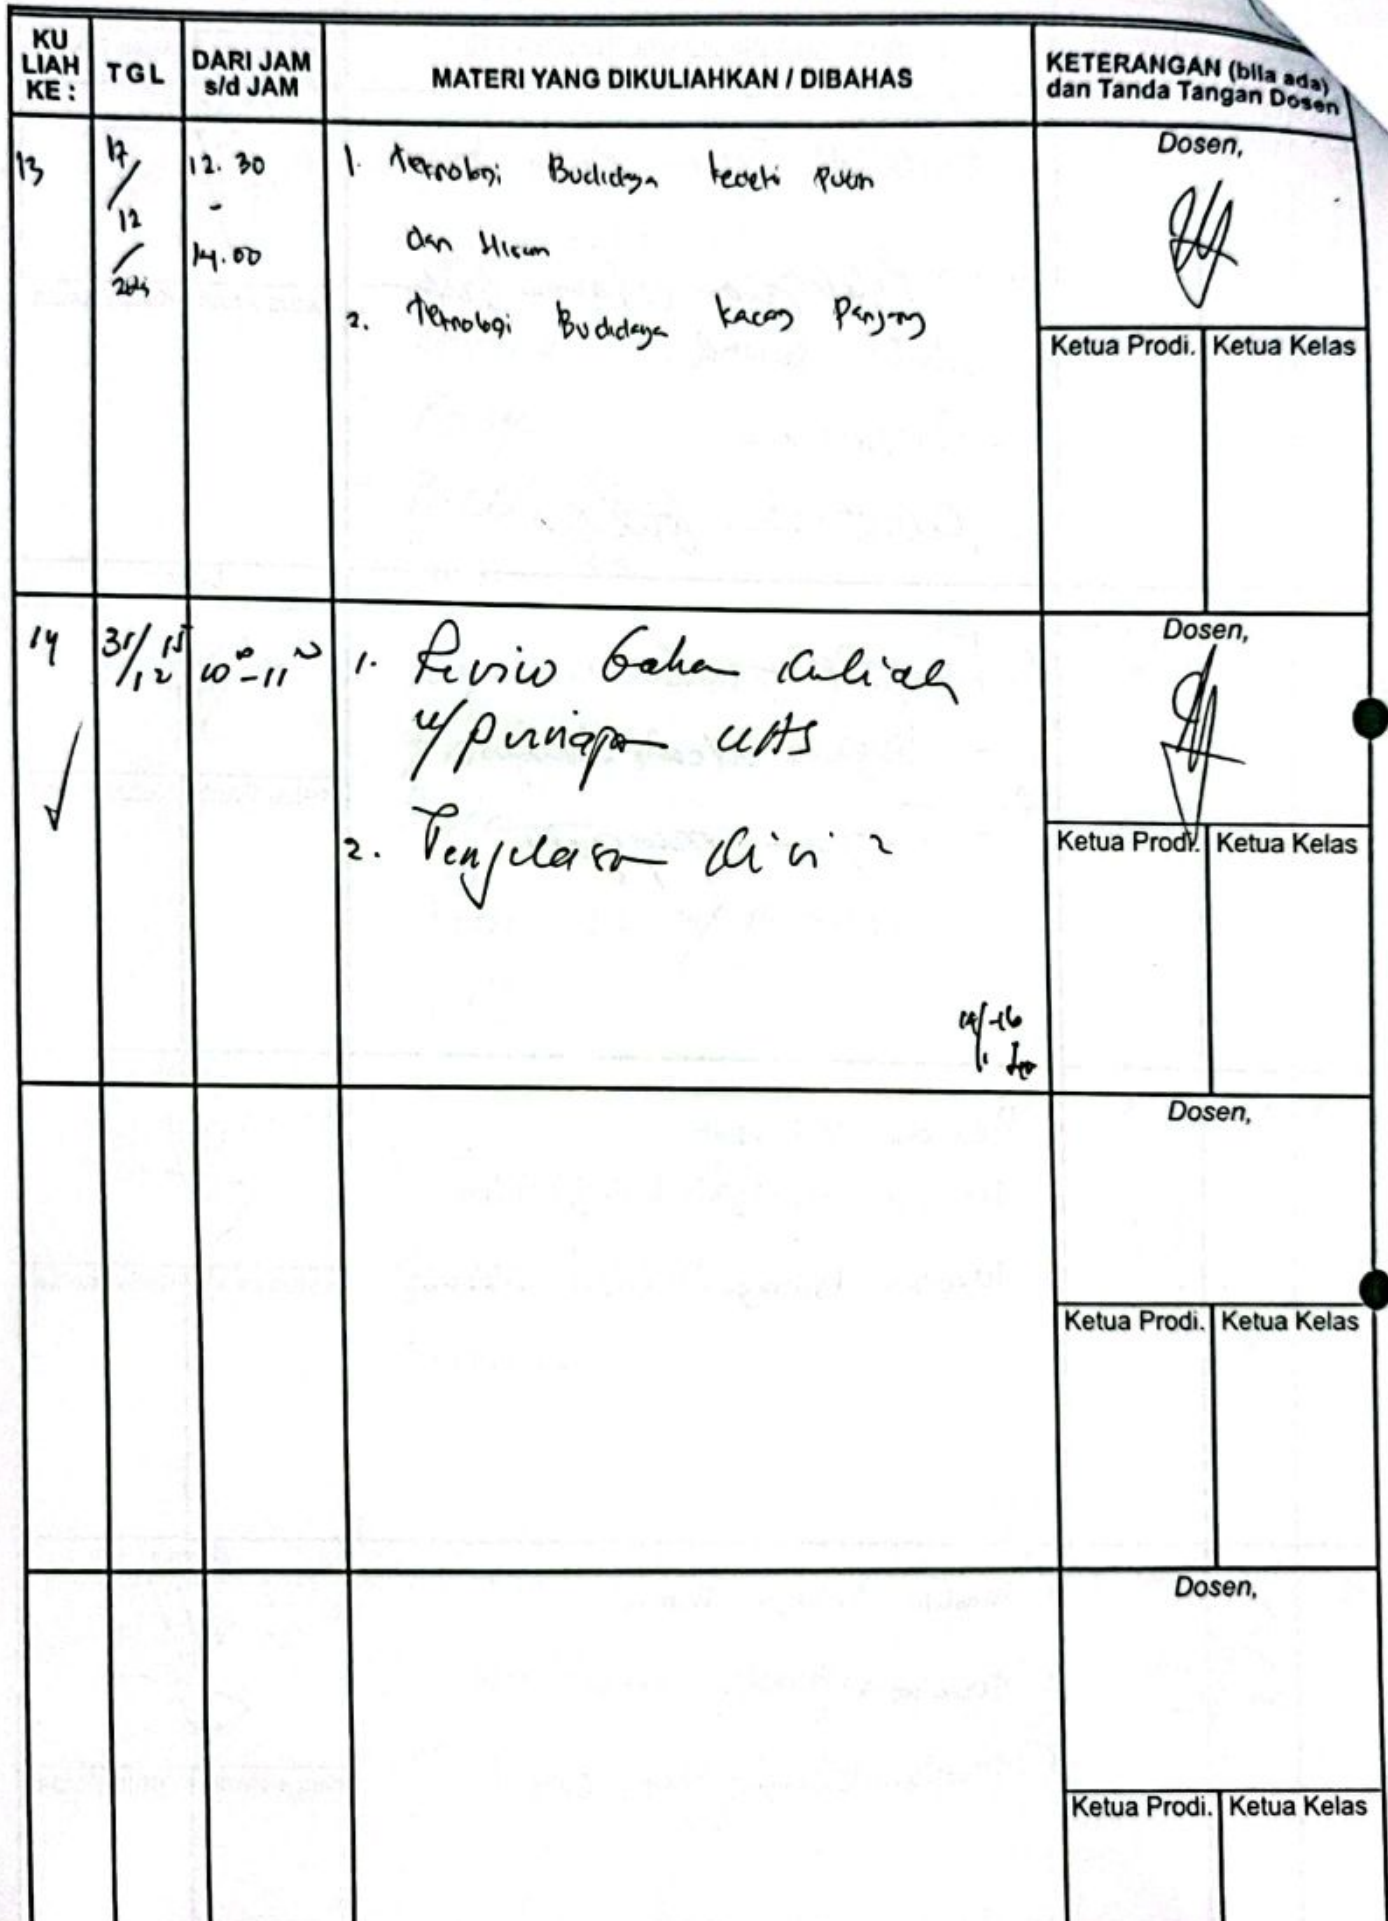 KU
LIAH
KE :
TGL
DARI JAM
s/d JAM
MATERI YANG DIKULIAHKAN / DIBAHAS
KETERANGAN (bila ada)
dan Tanda Tangan Dosen
13
17/
12
/
12. 30
-
14.00
1. Teknologi Budidaya kedelai
dan Hitam
2. Teknologi Budidaya kacang Panjang
Dosen,
Ketua Prodi. Ketua Kelas
14
31/12 15
1. Review bahan kuliah
u/ persiapan UAS
2. Penjelasan
Dosen,
Ketua Prodi. Ketua Kelas
Dosen,
Ketua Prodi. Ketua Kelas
Dosen,
Ketua Prodi. Ketua Kelas